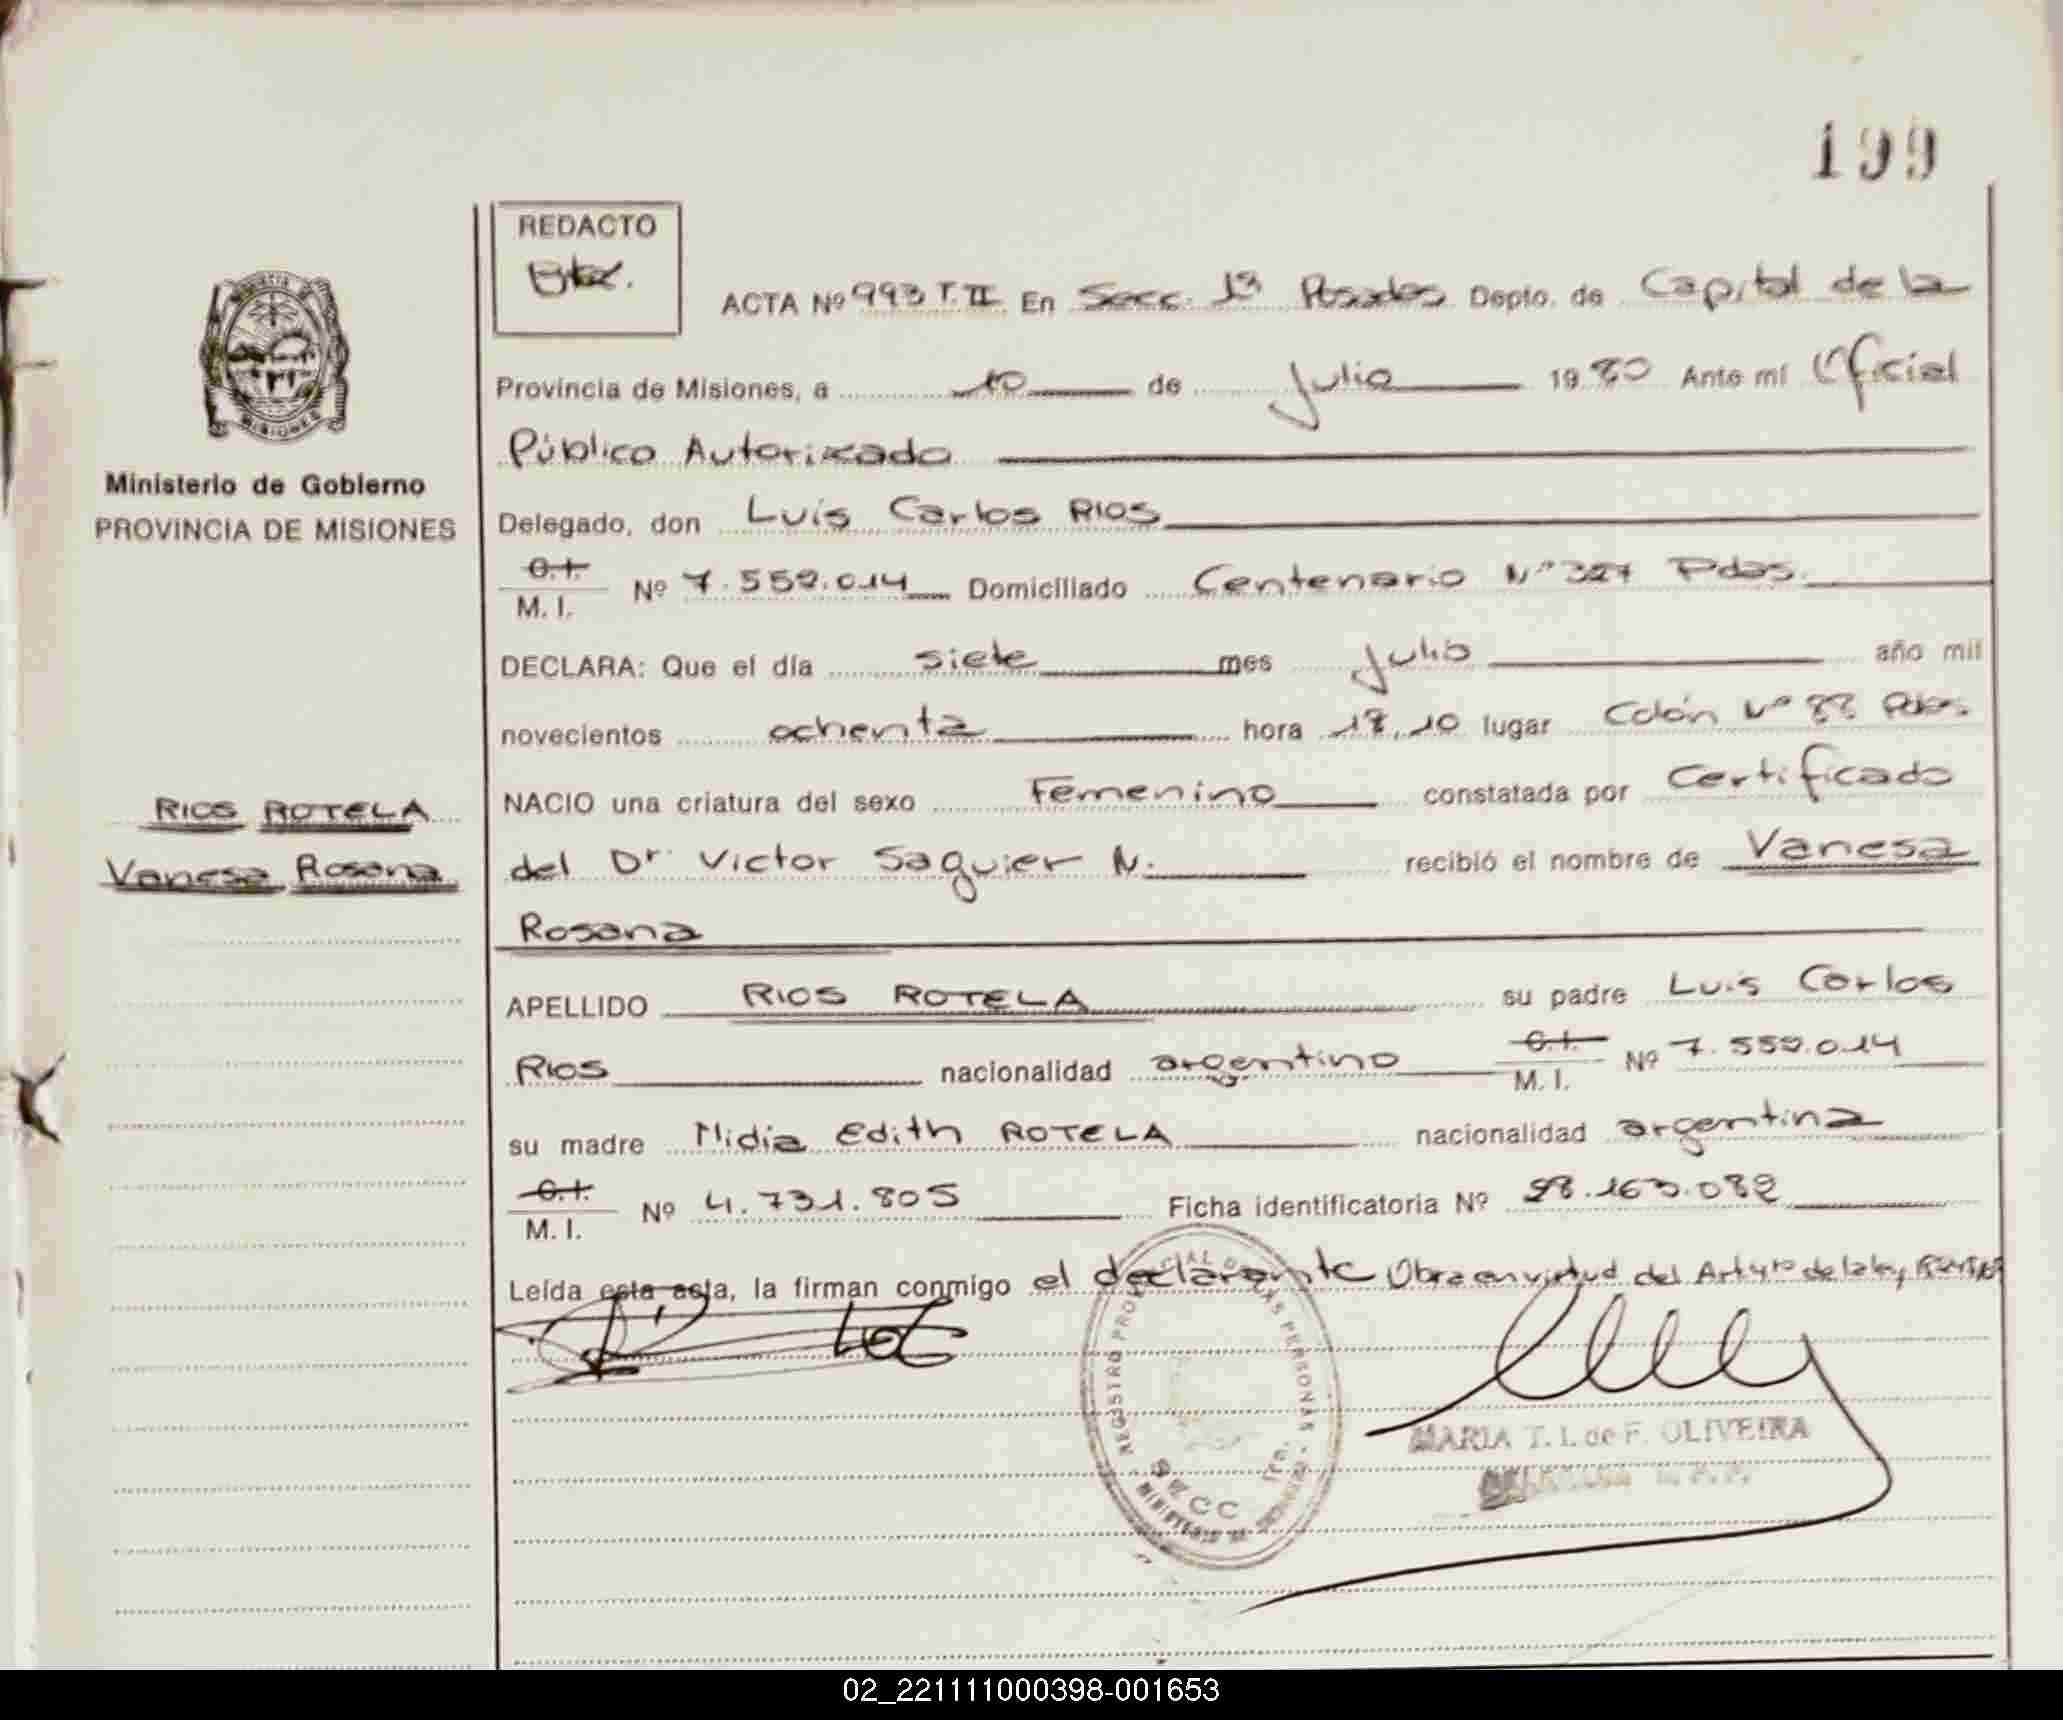 199
REDACTO
ACTA Nº 993 T. II En Secc. 1ª Posadas Depto. de Capital de la
Provincia de Misiones, a 10 de Julio 1980 Ante mí Oficial
Público Autorizado
Ministerio de Gobierno
PROVINCIA DE MISIONES
Delegado, don Luis Carlos RIOS
C.I.
M. I. Nº 7.559.014 Domiciliado Centenario Nº 327 Pdas.
DECLARA: Que el día siete mes Julio año mil
novecientos ochenta hora 18,10 lugar Colón Nº 88 Pdas.
RIOS ROTELA
Vanesa Rosana
NACIO una criatura del sexo Femenino constatada por Certificado
del Dr. Victor Saguier N. recibió el nombre de Vanesa
Rosana
APELLIDO RIOS ROTELA su padre Luis Carlos
RIOS nacionalidad argentino C.I. M. I. Nº 7.559.014
su madre Nidia Edith ROTELA nacionalidad argentina
C.I.
M. I. Nº 4.731.805 Ficha identificatoria Nº 28.163.082
Leída esta acta, la firman conmigo el declarante Obra en virtud del Art 4to de la ley
REGISTRO PROVINCIAL DE LAS PERSONAS
SECC 1ra.
MINISTERIO DE GOBIERNO
MARIA T. I. de F. OLIVEIRA
02_221111000398-001653